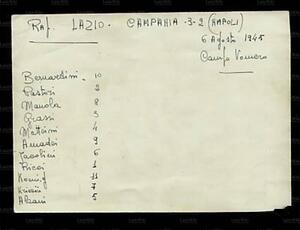 Raf. LAZIO - CAMPANIA - 3-2 (NAPOLI)
6 Agosto 1945
Campo Vomero
Bernardini - 10
Pastori 2
Manola 8
Grassi 3
Matteini 4
Amadei 9
Jacolini 6
Ricci 1
Koenig 11
Krieziu 7
Alzani 5